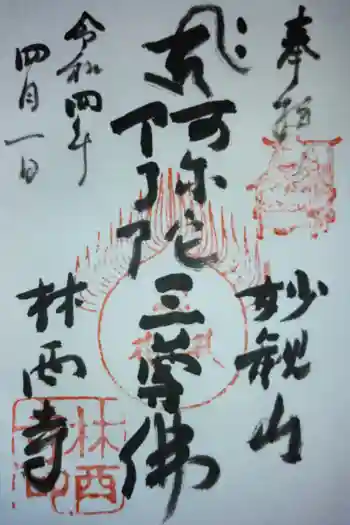 奉拝
妙観山
阿弥陀三尊佛
林西寺
令和四年
四月一日
林西